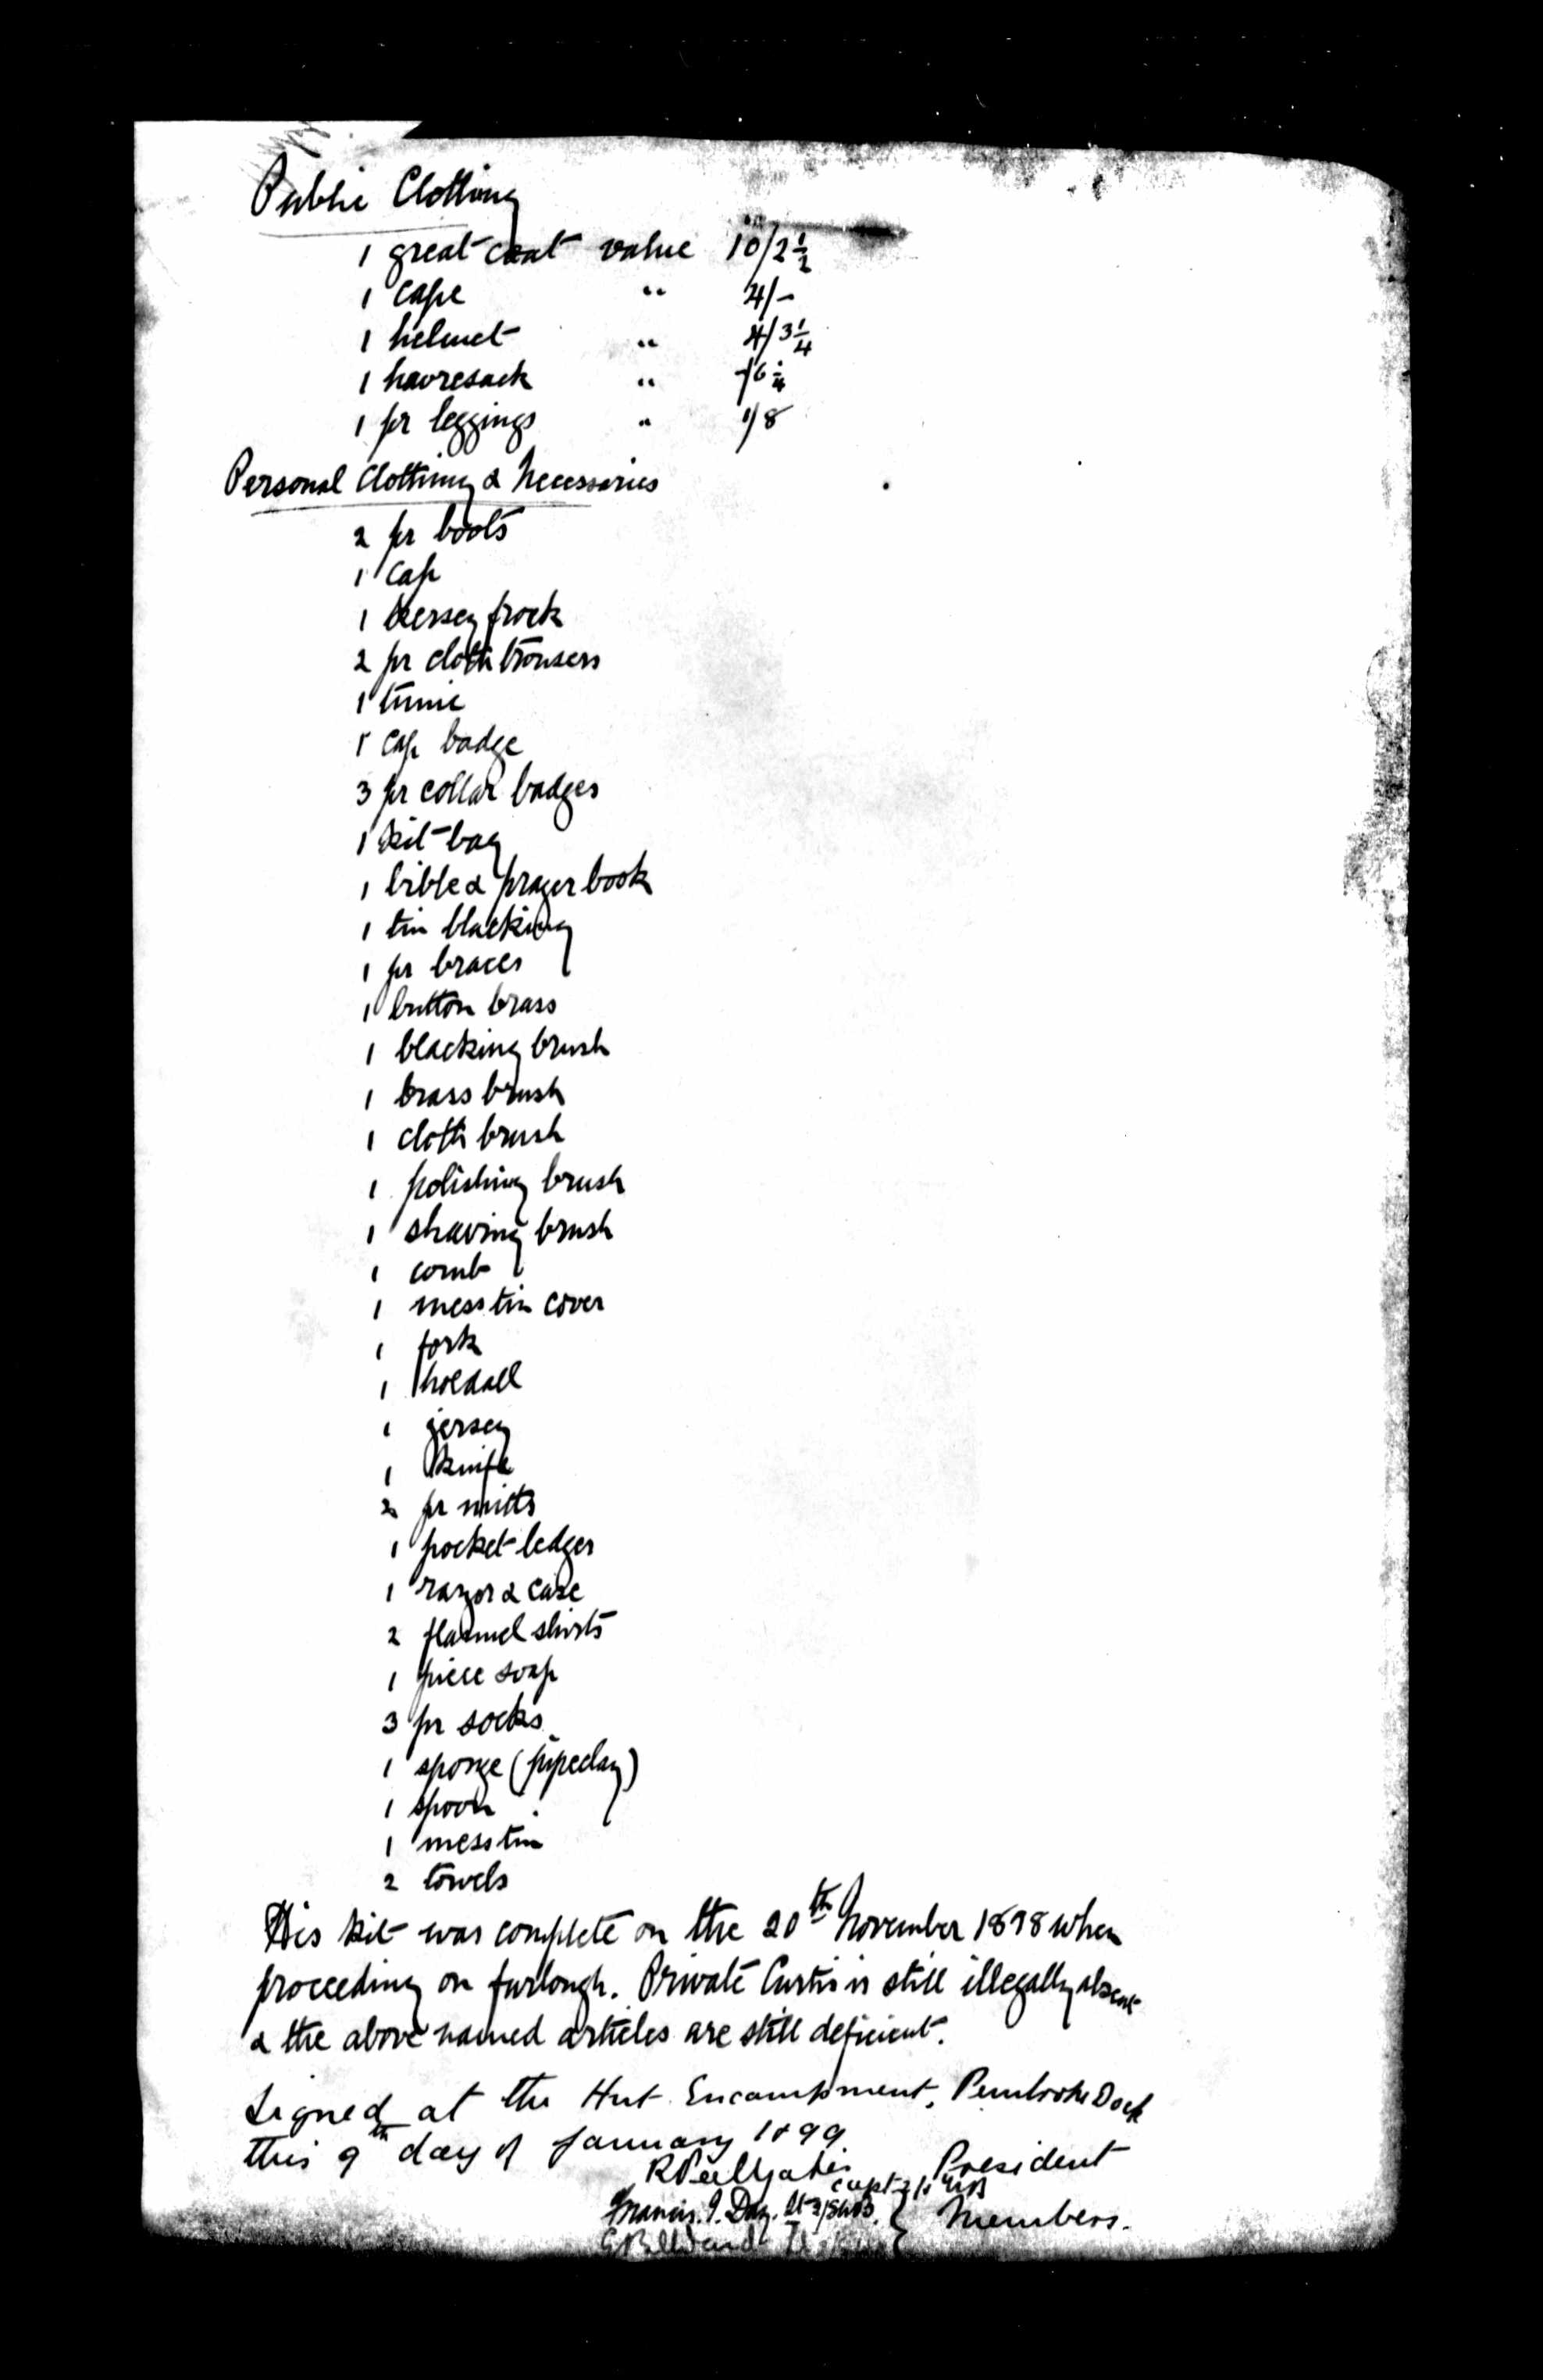 Public Clothing
1 great coat value 10/2½
1 cape " 4/-
1 helmet " 4/3¼
1 havresack " -/6¼
1 pr leggings " 1/8
Personal Clothing & Necessaries
2 pr boots
1 cap
1 kersey frock
2 pr cloth trousers
1 tunic
1 cap badge
3 pr collar badges
1 kit bag
1 bible & prayer book
1 tin blacking
1 pr braces
1 button brass
1 blacking brush
1 brass brush
1 cloth brush
1 polishing brush
1 shaving brush
1 comb
1 mess tin cover
1 fork
1 holdall
1 jersey
1 knife
2 pr mitts
1 pocket ledger
1 razor & case
2 flannel shirts
1 piece soap
3 pr socks
1 sponge (pipeclay)
1 spoon
1 mess tin
2 towels
His kit was complete on the 20th November 1898 when
proceeding on furlough. Private Curtis is still illegally absent
& the above named articles are still deficient.
Signed at the Hut Encampment, Pembroke Dock
this 9th day of January 1899
President
Capt
Francis. I. Day. Lt
Members.